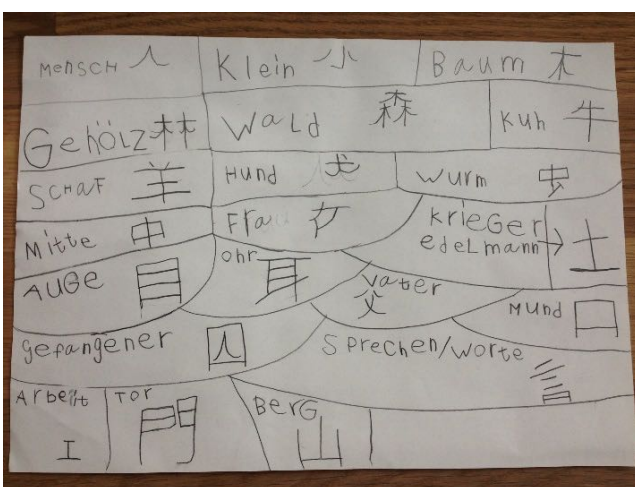 Mensch 人
Klein 小
Baum 木
Gehölz 林
Wald 森
Kuh 牛
Schaf 羊
Hund 犬
Wurm 虫
Mitte 中
Frau 女
Krieger
edelmann → 士
Auge 目
Ohr 耳
Vater
父
Mund 口
Gefangener 囚
Sprechen/Worte
言
Arbeit
工
Tor
門
Berg
山